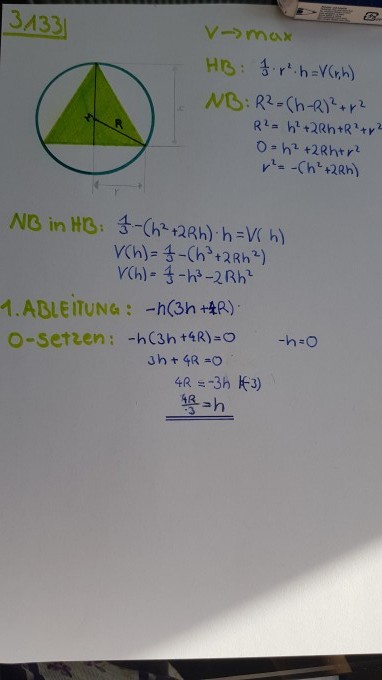 3.133
V→max
HB: 1/3 · r² · h = V(r,h)
NB: R² = (h-R)² + r²
R² = h² + 2Rh + R² + r²
0 = h² + 2Rh + r²
r² = -(h² + 2Rh)
M
R
h
r
NB in HB: 1/3 -(h² + 2Rh) · h = V( h)
V(h) = 1/3 -(h³ + 2Rh²)
V(h) = 1/3 - h³ - 2Rh²
1. ABLEITUNG: -h(3h + 4R)
0-setzen: -h(3h + 4R) = 0 -h = 0
3h + 4R = 0
4R = -3h |(-3)
4R/-3 = h